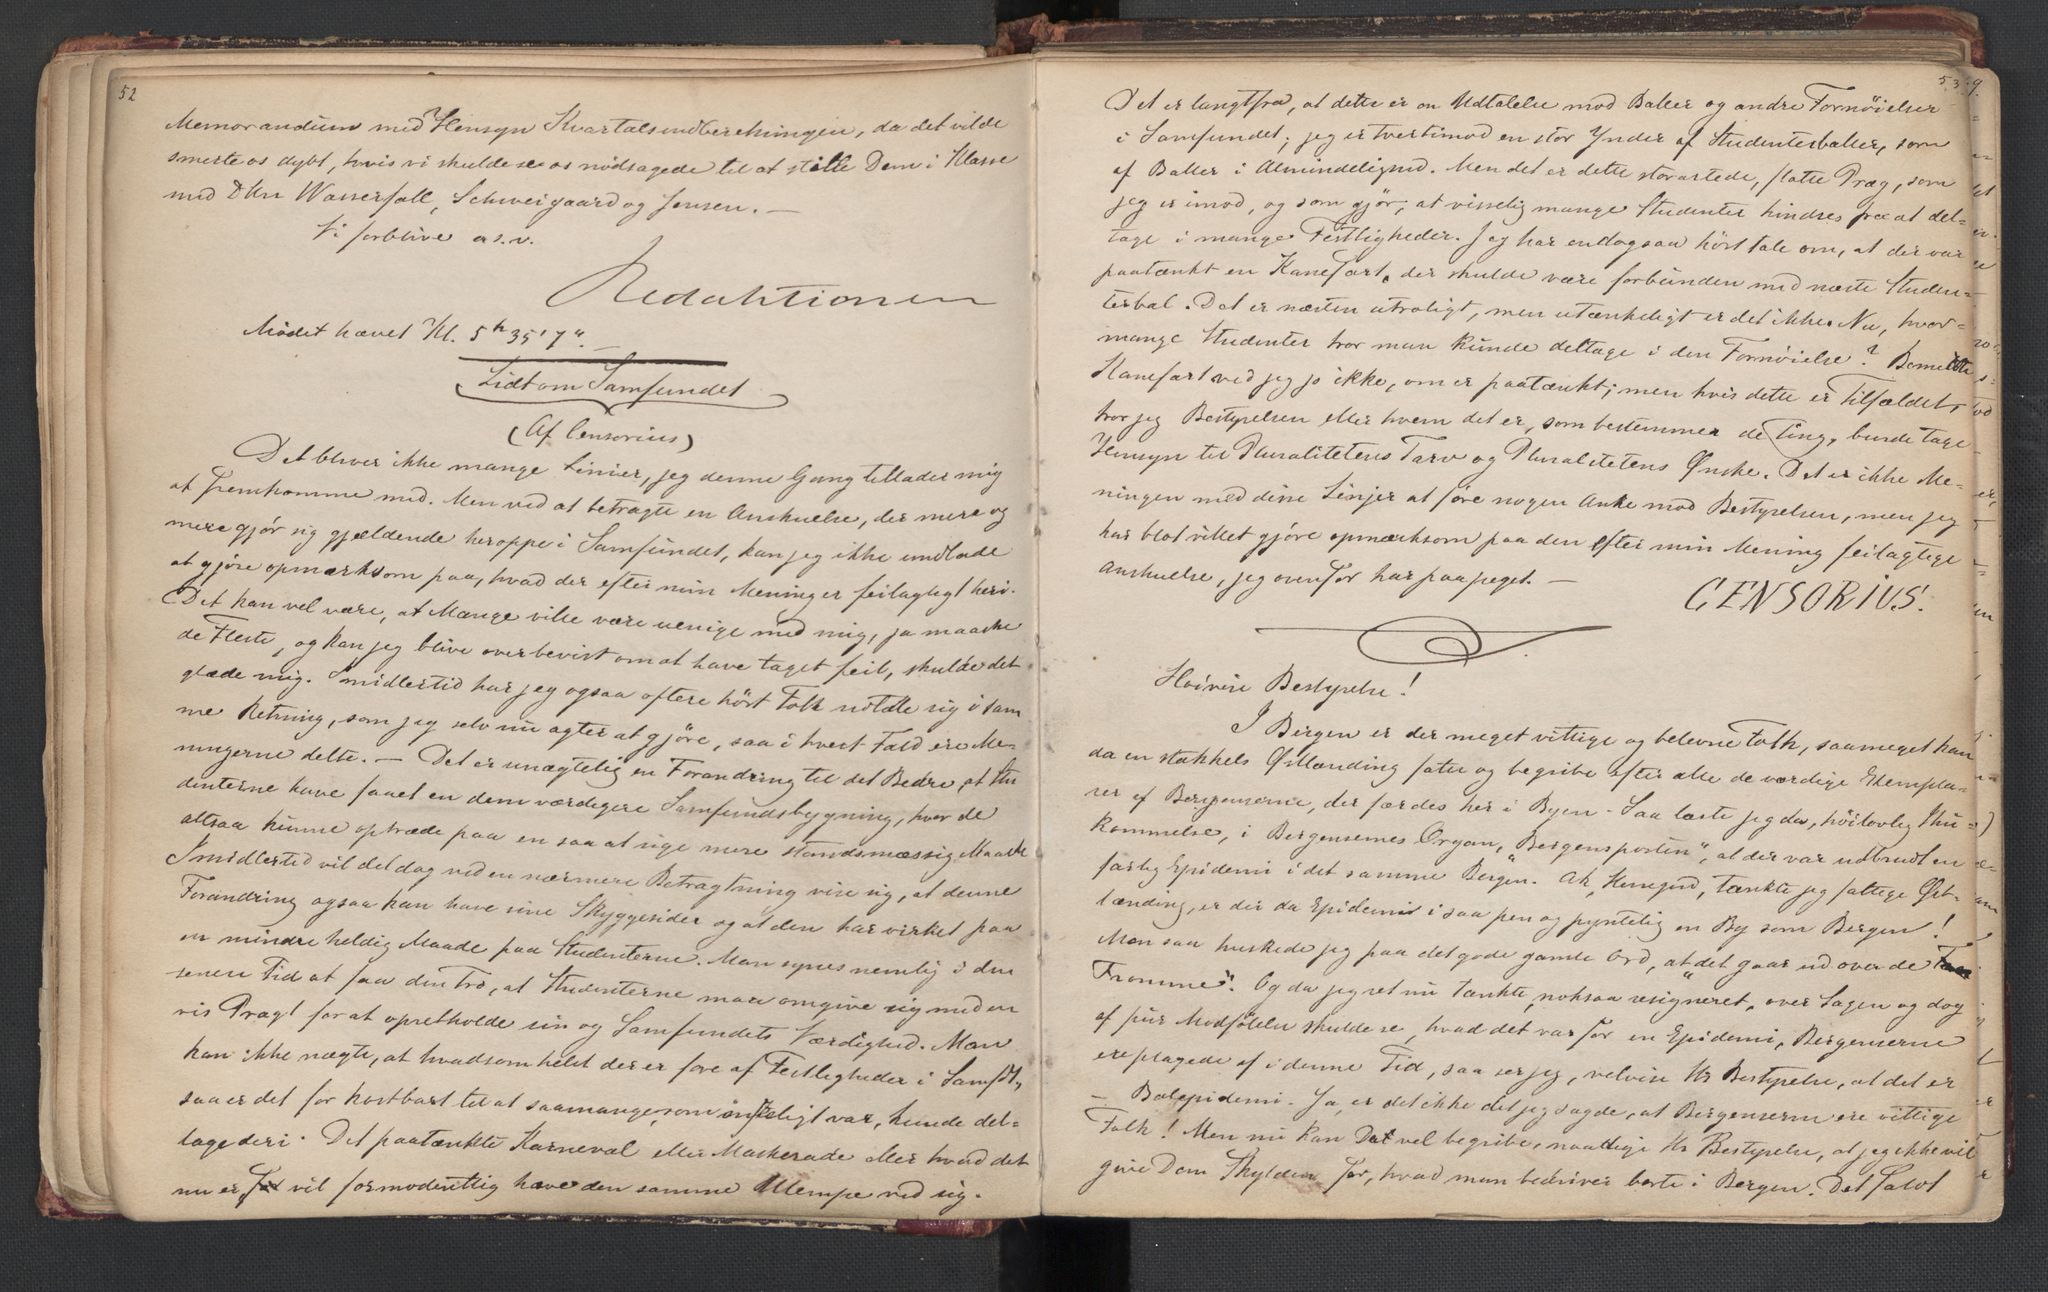 52
Memorandum med Hensyn Kvartalsindberetningen, da det vilde
smerte os dybt, hvis vi skulde se os nödsagede til at stille Dem i Klasse
med DHrr Wasserfall, Schweigaard og Jensen. —
Vi forblive o.s.v.
Redaktionen
Mödet hævet Kl. 5h 35' 7". —
Lidt om Samfundet
(Af Censorius)
Det bliver ikke mange Linier, jeg denne Gang tillader mig
at fremkomme med. Men ved at betragte en Anskuelse, der mere og
mere gjör sig gjældende heroppe i Samfundet, kan jeg ikke undlade
at gjöre opmærksom paa, hvad der efter min Mening er feilagtigt heri.
Det kan vel være, at Mange ville være uenige med mig, ja maaske
de Fleste, og kan jeg blive overbevist om at have taget feil, skulde det
glæde mig. Imidlertid har jeg ogsaa oftere hört Folk udtale sig i sam
me Retning, som jeg selv nu agter at gjöre, saa i hvert Fald ere Me-
ningerne delte. — Det er unægtelig en Forandring til det Bedre, at Stu
denterne have faaet en dem værdigere Samfundsbygning, hvor de
altsaa kunne optræde paa en saa at sige mere standsmæssig Maade
Imidlertid vil det dog ved en nærmere Betragtning vise sig, at denne
Forandring ogsaa kan have sine Skyggesider og at den har virket paa
en mindre heldig Maade paa Studenterne. Man synes nemlig i den
senere Tid at faa den Tro, at Studenterne maa omgive sig med en
vis Pragt for at opretholde sin og Samfundets Værdighed. Man
kan ikke nægte, at hvadsomhelst der er fore af Festligheder i Samfdt,
saa er det for kostbart til at saamange, som önskeligt var, kunde del-
tage deri. Det paatænkte Karneval eller Maskerade eller hvad det
nu er for vil formodentlig have den samme Ulempe ved sig.
53
9.
Det er langtfra, at dette er en Udtalelse mod Baller og andre Fornöielser
i Samfundet; jeg er tvertimod en stor Ynder af Studenterballer, som
af Baller i Almindelighed. Men det er dette storartede, flotte Præg, som
jeg er imod, og som gjör, at visselig mange Studenter hindres fra at del-
tage i mange Festligheder. Jeg har endogsaa hört tale om, at der var
paatænkt en Kanefart, der skulde være forbunden med næste Studen-
terbal. Det er næsten utroligt, men utænkeligt er det ikke. Nu, hvor-
mange Studenter tror man kunde deltage i den Fornöielse? Bemeldte
Kanefart ved jeg jo ikke, om er paatænkt; men hvis dette er Tilfældet,
tror jeg Bestyrelsen eller hvem det er, som bestemmer de Ting, burde tage
Hensyn til Pluralitetens Tarv og Pluralitetens Ønske. Det er ikke Me-
ningen med disse Linjer at före nogen Anke mod Bestyrelsen, men jeg
har blot villet gjöre opmærksom paa den efter min Mening feilagtige
Anskuelse, jeg ovenfor har paapeget. —
CENSORIUS.
Höivise Bestyrelse!
I Bergen er der meget vittige og belevne Folk, saameget kan
da en stakkels Østlænding fatte og begribe efter alle de værdige Exempla-
rer af Bergenserne, der færdes her i Byen. Saa læste jeg da, höilovlig Ihu-
kommelse, i Bergensernes Organ, "Bergensposten", at der var udbrudt en
farlig Epidemi i det samme Bergen. Ak, Herregud, tænkte jeg fattige Øst-
lænding, er der da Epidemi i saa pen og pyntelig en By som Bergen!
Men saa huskede jeg paa det gode gamle Ord, at "det gaar ud over de
Fromme". Og da jeg ret nu tænkte, noksaa resigneret, over Sagen og dog
af pur Medfölelse skulde se, hvad det var for en Epidemi, Bergenserne
ere plagede af i denne Tid, saa ser jeg, velvise Hr Bestyrelse, at det er
— Balepidemi. Ja, er det ikke det jeg sagde, at Bergenserne ere vittige
Folk! Men nu kan De vel begribe, naadige Hr Bestyrelse, at jeg ikke vil
give Dem Skylden for, hvad man bedriver borte i Bergen. Det falot